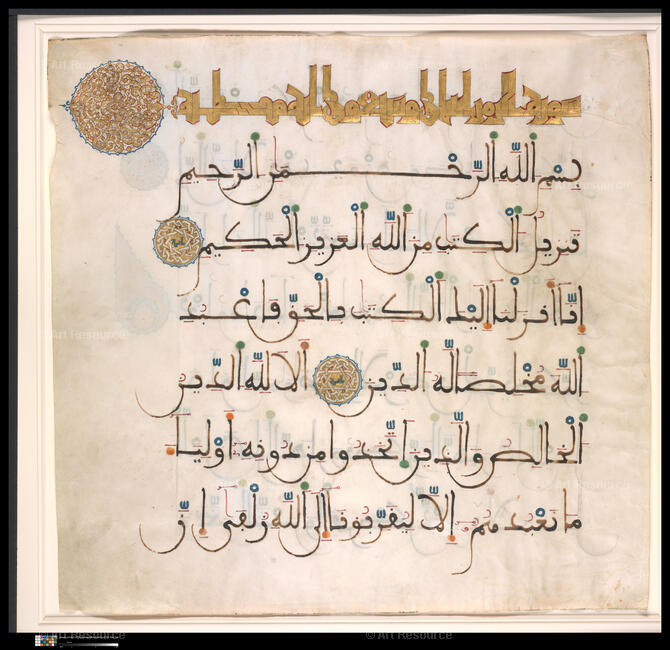 سورة الزمر
بِسْمِ اللَّهِ الرَّحْمَٰنِ الرَّحِيمِ
تَنزِيلُ الْكِتَٰبِ مِنَ اللَّهِ الْعَزِيزِ الْحَكِيمِ
إِنَّا أَنزَلْنَا إِلَيْكَ الْكِتَٰبَ بِالْحَقِّ فَاعْبُدِ
اللَّهَ مُخْلِصًا لَّهُ الدِّينَ أَلَا لِلَّهِ الدِّينُ
الْخَالِصُ وَالَّذِينَ اتَّخَذُوا مِن دُونِهِ أَوْلِيَاءَ
مَا نَعْبُدُهُمْ إِلَّا لِيُقَرِّبُونَا إِلَى اللَّهِ زُلْفَىٰ إِنَّ
© Art Resource
© Art Resource